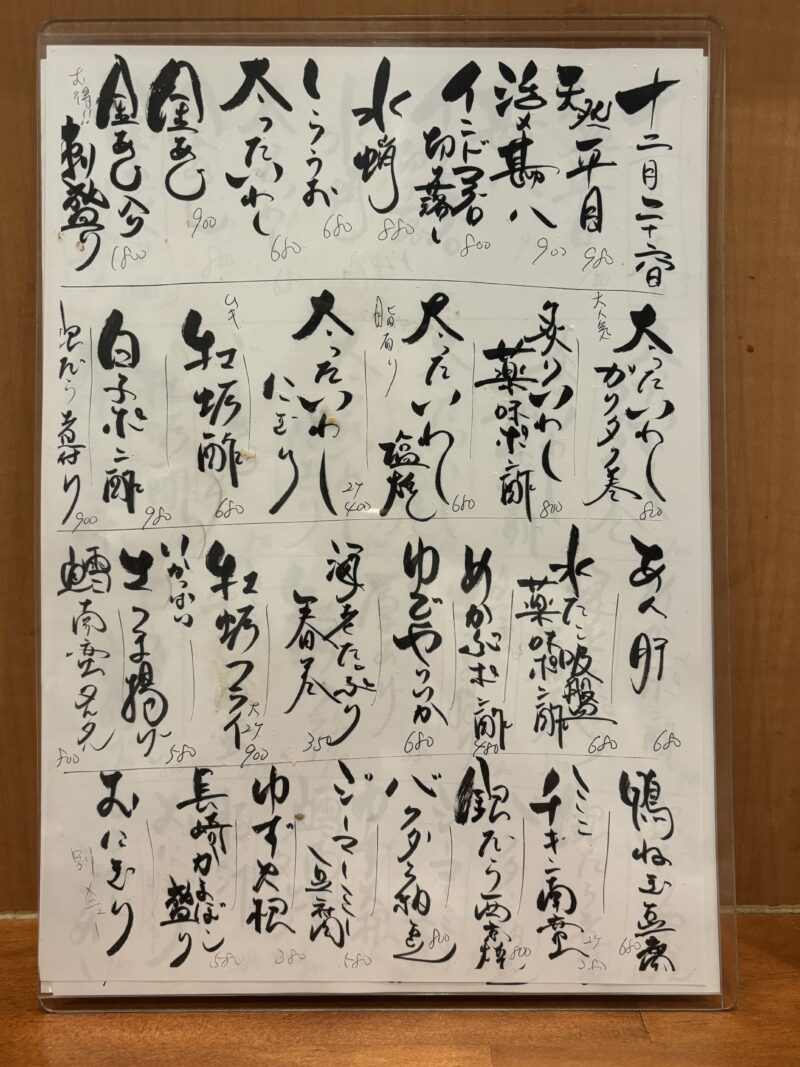 十二月二十六日
天然平目 980
活〆勘八 900
インドマグロ
切り落し 800
水蛸 880
しらうお 680
太ったいわし 680
金あじ 900
お得!!
刺盛り 1800
大人気
太ったいわし
ガリタク巻 800
炙りいわし
薬味ポン酢 800
太ったいわし
脂有り
塩焼 680
太ったいわし
にぎり 2ケ 400
ムキ
牡蛎酢 680
白子ポン酢 980
銀だら煮付け 900
あん肝 680
水たこ吸盤
薬味ポン酢 680
めかぶポン酢 480
ゆでやりいか 680
海老たっぷり
春巻 350
牡蛎フライ 大2ケ 900
さつま揚げ 580
鱈南蛮タルタル 800
鴨ねぎ豆腐 680
チキン南蛮 2ケ 580
銀だら西京焼 800
バクダン納豆 800
ジーマーミー
豆腐 580
ゆず大根 380
長崎かまぼこ
盛り 580
おにぎり
別メニュー